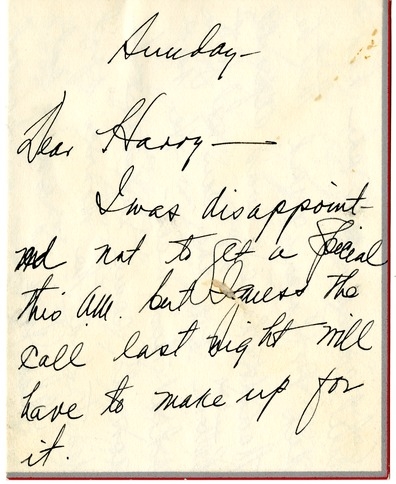 Sunday—
Dear Harry—
I was disappoint-
ed not to get a special
this AM. but I guess the
call last night will
have to make up for
it.